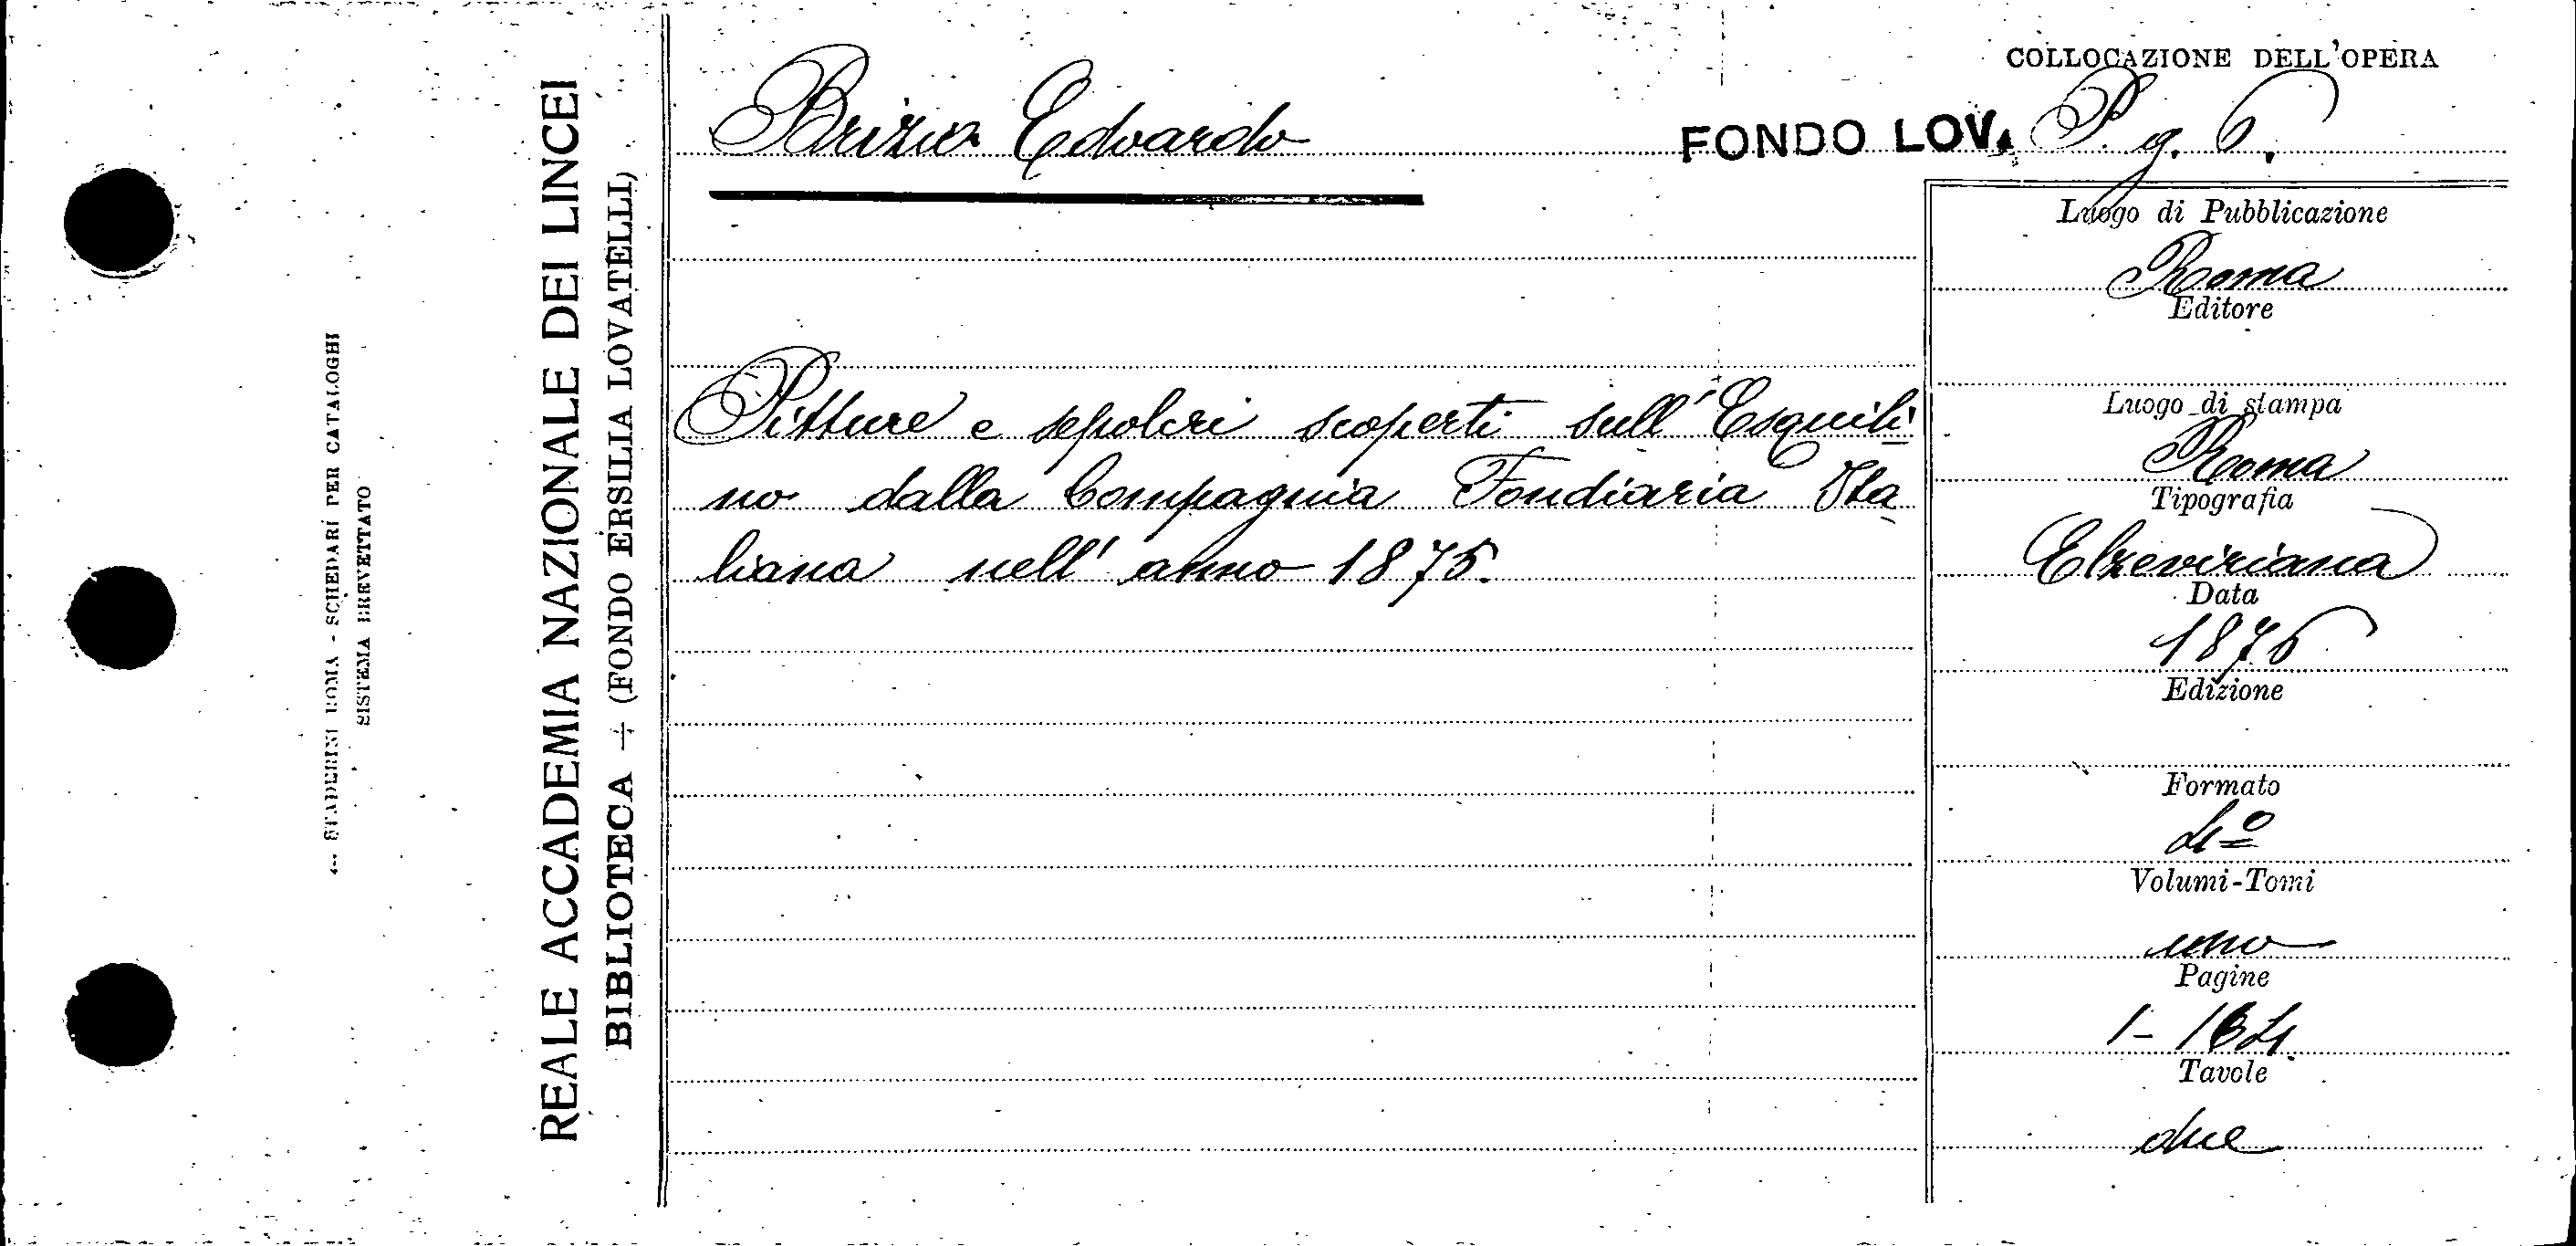 COLLOCAZIONE DELL'OPERA
Brizio Edoardo
FONDO LOV. P. g. 6.
Pitture e sepolcri scoperti sull'Esquili
no dalla Compagnia Fondiaria Ita
liana nell'anno 1875.
Luogo di Pubblicazione
Roma
Editore
Luogo di stampa
Roma
Tipografia
Elzeviriana
Data
1876
Edizione
Formato
4º
Volumi-Tomi
uno
Pagine
1-164.
Tavole
due
REALE ACCADEMIA NAZIONALE DEI LINCEI
BIBLIOTECA (FONDO ERSILIA LOVATELLI)
STADERINI ROMA - SCHEDARI PER CATALOGHI
SISTEMA BREVETTATO